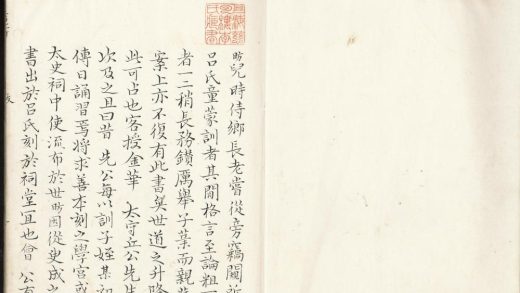 昉兒時侍鄉長老嘗從旁竊聞所
呂氏童蒙訓者其間格言至論粗一
者一二稍長務鑽厲舉子業而親
案上亦不復有此書矣世道之升降
此可占也客授金華 太守丘公先生
次及之且曰昔 先公每以訓子姪某初
傳日誦習焉將求善本刻之學宮或
太史祠中使流布於世昉因從臾成之
書出於呂氏刻於祠堂宜也會 公有